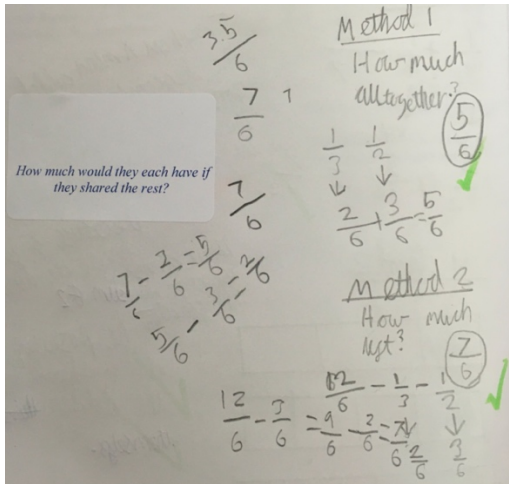 3.5/6
7/6
7/6
How much would they each have if
they shared the rest?
7/6 - 2/6 = 5/6
5/6 - 3/6 = 2/6
Method 1
How much
alltogether?
5/6
1/3 1/2
↓ ↓
2/6 + 3/6 = 5/6
Method 2
How much
7/6
12/6 - 1/3 - 1/2
↓ ↓
2/6 3/6
12/6 - 3/6 = 9/6 - 2/6 = 7/6